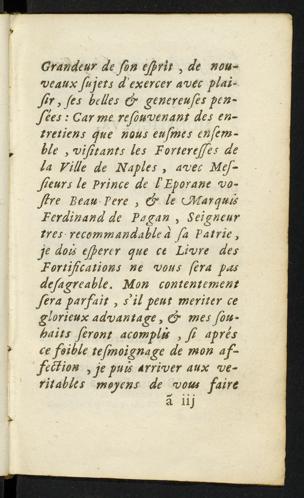 Grandeur de ſon eſprit , de nou-
veaux ſujets d'exercer avec plai-
ſir , ſes belles & genereuſes pen-
ſées : Car me reſouvenant des en-
tretiens que nous euſmes enſem-
ble , viſitants les Fortereſſes de
la Ville de Naples , avec Meſ-
ſieurs le Prince de l'Eporane vo-
ſtre Beau Pere , & le Marquis
Ferdinand de Pagan , Seigneur
tres-recommandable à ſa Patrie ,
je dois eſperer que ce Livre des
Fortifications ne vous ſera pas
deſagreable. Mon contentement
ſera parfait , s'il peut meriter ce
glorieux advantage , & mes ſou-
haits ſeront acomplis , ſi aprés
ce foible teſmoignage de mon af-
fection , je puis arriver aux ve-
ritables moyens de vous faire
ã iij